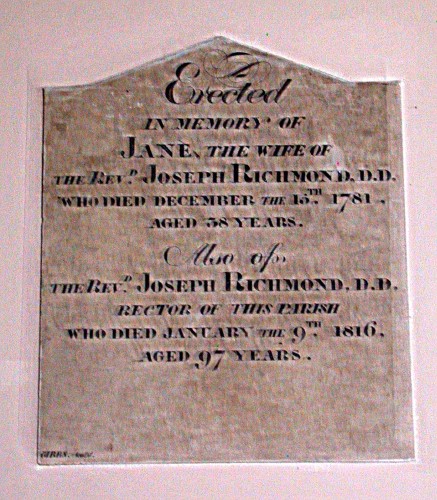 Erected
IN MEMORY OF
JANE, THE WIFE OF
THE REV.D JOSEPH RICHMOND, D.D.
WHO DIED DECEMBER THE 15TH 1781,
AGED 58 YEARS.
Also of
THE REV.D JOSEPH RICHMOND, D.D.
RECTOR OF THIS PARISH
WHO DIED JANUARY THE 9TH 1816,
AGED 97 YEARS.